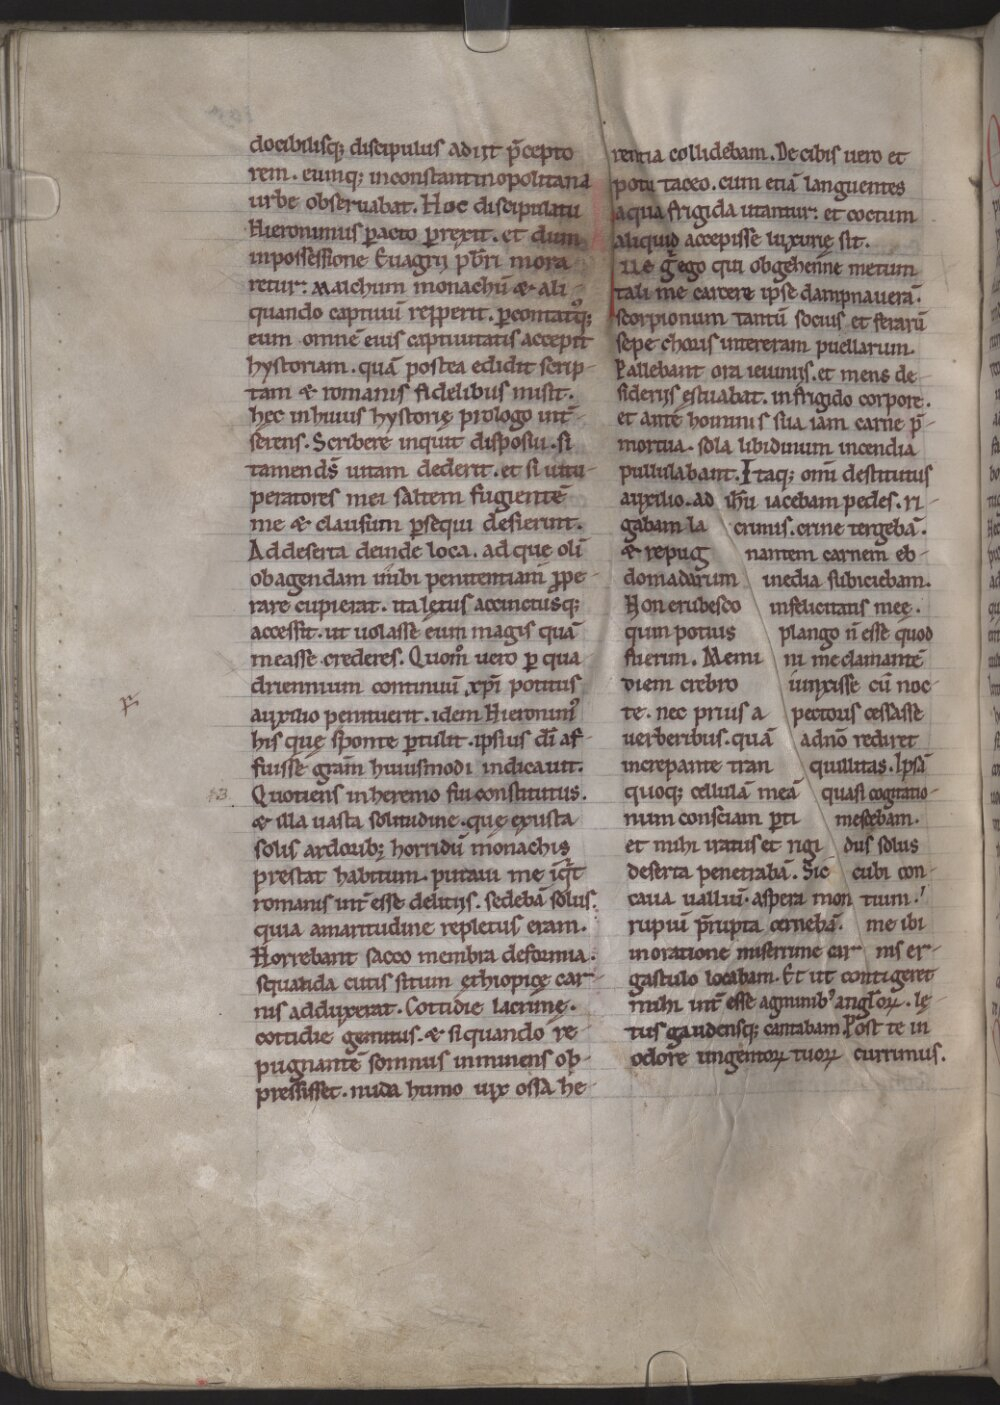 docibilisq; discipulus adiit p̄cepto
rem. eumq; inconstantinopolitana
urbe obseruabat. Hoc discipulatu
Hieronimus ꝑacto ꝑrexit. et dum
inpossessione Euagrii pb̄ri mora
retur: Malchum monachū & ali-
quando captiuū repperit. ꝑcontatq;
eum omnē eius captiuitatis accepit
hystoriam. quā postea edidit scrip-
tam & romanis fidelibus misit.
hec inhuius hystorię prologo int̄-
serens. Scribere inquit disposui. si
tamen ds̄ uitam dederit. et si uitu-
peratores mei saltem fugientē
me & clausum ꝑsequi desierint.
Addeserta deinde loca. ad que olī
obagendam inibi penitentiam ꝓpe-
rare cupierat. ita lętus accinctusq;
accessit. ut uolasse eum magis quā
measse crederes. Quom̄ uero ꝑ qua
driennium continuū xp̄i potitus
auxilio penituerit. idem Hieronim᾿
his quę sponte ꝑtulit. ipsius dī af-
fuisse gr̄am huiusmodi indicauit.
Quotiens inheremo fui constitutus.
& illa uasta solitudine. que exusta
solis ardorib; horridū monachis
prestat habitum. putaui me
romanis int̄ esse delitiis. sedebā solus.
quia amaritudine repletus eram.
Horrebant sacco membra deformia.
squalida cutis situm ethiopicę car-
nis adduxerat. Cottidie lacrimę.
cottidie gemitus. & si quando re-
pugnantē somnus inminens op-
pressisset. nuda humo uix ossa he-
rentia collidebam. De cibis uero et
potu taceo. cum etiā languentes
aqua frigida utantur. et coctum
aliquid accepisse luxurię sit.
ego qui obgehenne metum
tali me carcere ip̄se dampnauerā.
scorpionum tantū socius et ferarū
sepe choris intereram puellarum.
Pallebant ora ieiuniis. et mens de-
sideriis ęstuabat. infrigido corpore.
et ante hominis sua iam carne p̄-
mortua. sola libidinum incendia
pullulabant. Itaq; omī destitutus
auxilio. ad ih̄u iacebam pedes. ri-
gabam lacrimis. crine tergebā.
& repugnantem carnem eb-
domadarum inedia subiciebam.
Non erubesco infelicitatis meę.
quin potius plango n̄ esse quod
fuerim. Memini me clamantē
diem crebro iunxisse cū noc-
te. nec prius a pectoris cessasse
uerberibus. quā ad n̄o rediret
increpante tranquillitas. Ipsā
quoq; cellulā meā quasi cogitatio-
num consciam ꝑtimescebam.
et mihi iratus et rigidus solus
deserta penetrabā. Sic cubi con-
caua ualliū. aspera montium.
rupiū p̄rupta cernebā. me ibi
inoratione miserrime carnis er-
gastulo locabam. Et ut contigeret
mihi int̄ esse agminib᾿ anglorꝝ. lę-
tus gaudensq; cantabam. Post te in
odore ungentorꝝ tuorꝝ currimus.